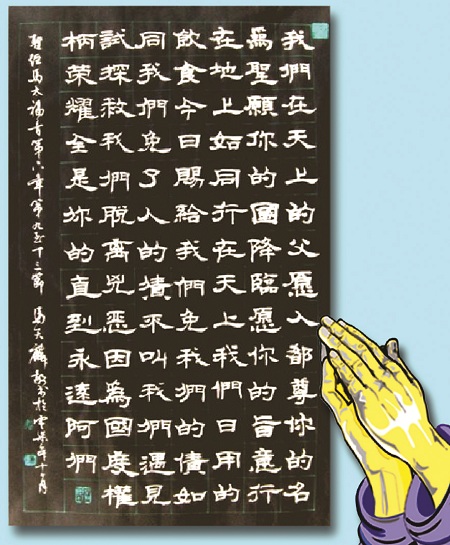 我們在天上的父愿人都尊你的名
爲聖願你的國降臨愿你的旨意行
在地上如同行在天上我們日用的
飲食今日賜給我們免我們的債如
同我們免了人的債不叫我們遇見
試探救我們脫離兇惡因爲國度權
柄榮耀全是你的直到永遠阿們
聖經馬太福音第六章第九至十三節 馬天麟敬書於